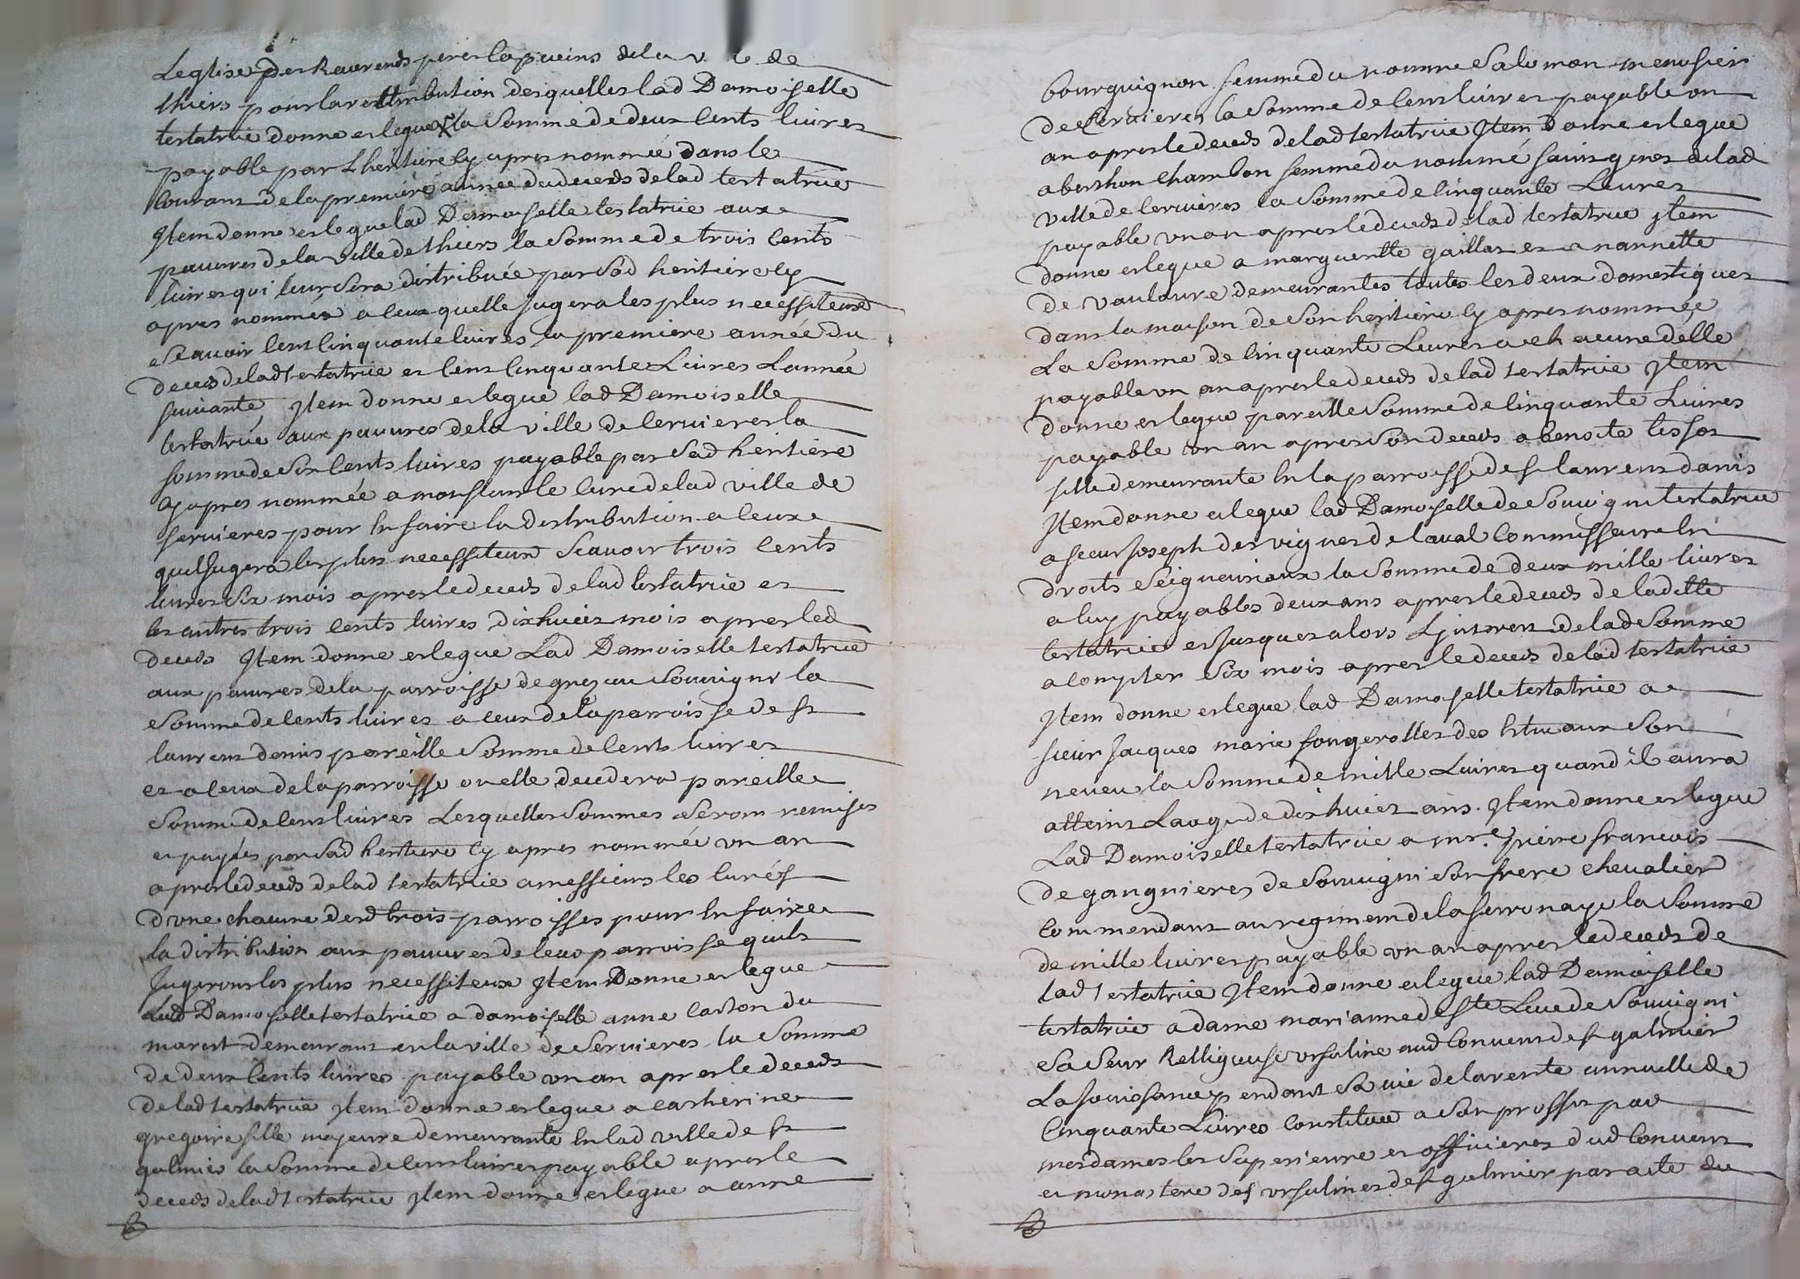 Leglise des Reverends peres Capucins de la v de
thiers pour la rettribution desquelles lad Damoiselle
testatrice donne et legue la somme de deux cents livres
payable par L'heritiere cy apres nommée dans le
courant de la premiere année du deceds de lad testatrice
Jtem donne et legue lad Damoiselle testatrice aux
pauvres de la ville de thiers la somme de trois cents
livres qui leur sera distribuée par sad heritiere cy
apres nommée a ceux quelle jugera les plus necessiteux
scavoir cent cinquante livres la premiere année du
deceds de lad testatrice et cent cinquante Livres L'année
suivante Jtem donne et legue lad Damoiselle
testatrice aux pauvres de la ville de Cervieres la
somme de six cents livres payable par sad heritiere
cy apres nommée a monsieur le curé de lad ville de
servieres pour en faire la distribution a ceux
quil jugera les plus necessiteux scavoir trois cents
livres six mois apres le deceds de lad testatrice et
les autres trois cents livres dix huict mois apres led
deceds Jtem donne et legue Lad Damoiselle testatrice
aux pauvres de la parroisse de grezieu souvigni la
somme de cents livres a ceux de la parroisse de st
laurens danis pareille somme de cents livres
et a ceux de la parroisse ou elle decedera pareille
somme de cent livres Lesquelles sommes seront remises
et payées par sad heritiere cy apres nommée un an
apres le deceds de lad testatrice a messieurs les curés
dune chacune desd trois parroisses pour en faire
la distribution aux pauvres de leur parroisse quils
jugeront les plus necessiteux Jtem Donne et legue
Lad Damoiselle testatrice a damoiselle anne caston du
marest demeurant en la ville de Servieres la somme
de deux cents livres payable un an apres le deceds
de lad testatrice Jtem donne et legue a catherine
gregoire fille majeure demeurante en lad ville de st
galmier la somme de cent livres payable apres le
deceds de lad testatrice Jtem donne et legue a anne
bourguignon femme du nomme Salomon menusier
de Cervieres la somme de cent livres payable un
an apres le deceds de lad testatrice Jtem Donne et legue
a berthon Chambon femme du nommé saint genes de lad
ville de Cervieres la somme de cinquante Livres
payable un an apres le deceds de lad testatrice Jtem
donne et legue a marguerite gaillat et a nannette
de vaulaure demeurantes toutes les deux domestiques
dans la maison de son heritiere cy apres nommée
La somme de cinquante Livres a chacune delle
payable un an apres le deceds de lad testatrice Jtem
donne et legue pareille somme de cinquante Livres
payable un an apres son deceds a benoite tissot
fille demeurante en la parroisse de st laurens danis
Jtem donne et legue lad Damoiselle de Souvigni testatrice
a sieur joseph des vignes de laval Commissaire en
droits seigneuriaux la somme de deux mille livres
a luy payables deux ans apres le deceds de laditte
testatrice et jusques alors L'jnterest de lad somme
a compter six mois apres le deceds de lad testatrice
Jtem donne et legue lad Damoiselle testatrice a
sieur jacques marie fougerolles des hteaux son
neveu la somme de mille Livres quand il aura
atteint L'aage de dix huict ans. Jtem donne et legue
Lad Damoiselle testatrice a mre. pierre francois
de gangnieres de Souvigni son frere chevalier
commendant au regiment de la ferronaye la somme
de mille livres payable un an apres le deceds de
lad testatrice Jtem donne et legue lad Damoiselle
testatrice a dame marianne de ste Luce de Souvigni
sa seur Relligieuse ursuline aud Convent de st galmier
La jouissance pendant sa vie de la rente annuelle de
cinquante Livres constituée a son proffit par
mesdames les superieure et officieres dud Convent
et monastere des ursulines de st galmier par acte du